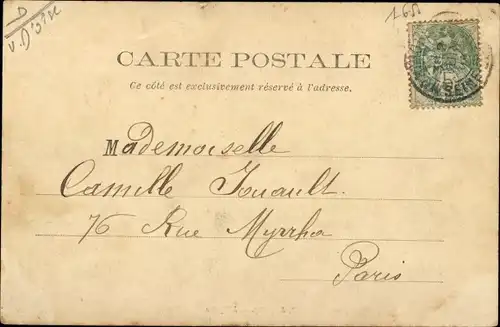 D
V. D'oise
1.65
CARTE POSTALE
Ce côté est exclusivement réservé à l'adresse.
Mademoiselle
Camille Jouault.
76 Rue Myrrha
Paris
SEINE